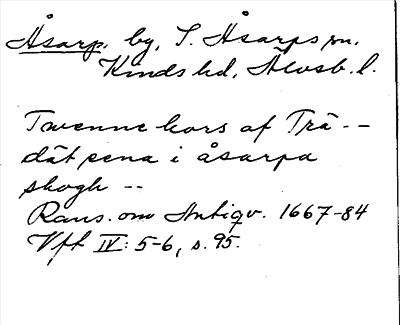 Åsarp. by, S. Åsarps sn.
Kinds hd, Älvsb. l.
Twenne kors af Trä --
dät sena i åsarpa
skogh --
Rans. om Antiqv. 1667-84
Vft IV: 5-6, s. 95.